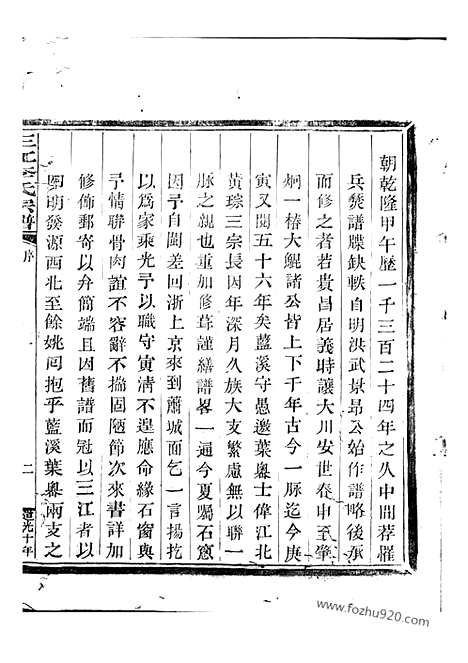 朝乾隆甲午歷一千三百二十四年之久中間荐罹
兵燹譜牒缺軼自明洪武景昂公始作譜略後承
而修之者若貴昌居義時讓大川安世春申至肇
炯一椿大鯤諸公皆上下千年古今一脉迄今庚
寅又閱五十六年矣藍溪守愚邀葉粵士偉江北
黃琮三宗長因年深月久族大支繁慮無以聯一
脉之親也重加修葺謹繕譜畧一通今夏囑石窻
因予自闈差回浙上京來到蕭城面乞一言揚扢
以爲家乘光予以職守寅清不遑應命緣石窗與
予情聯骨肉誼不容辭不揣固陋節次來書詳加
修佈郵寄以弁簡端且因舊譜而冠以三江者以
四明發源西北至餘姚囘抱乎藍溪葉粵兩支之
三江李氏宗譜
序
二
道光十年
www.fozhu920.com